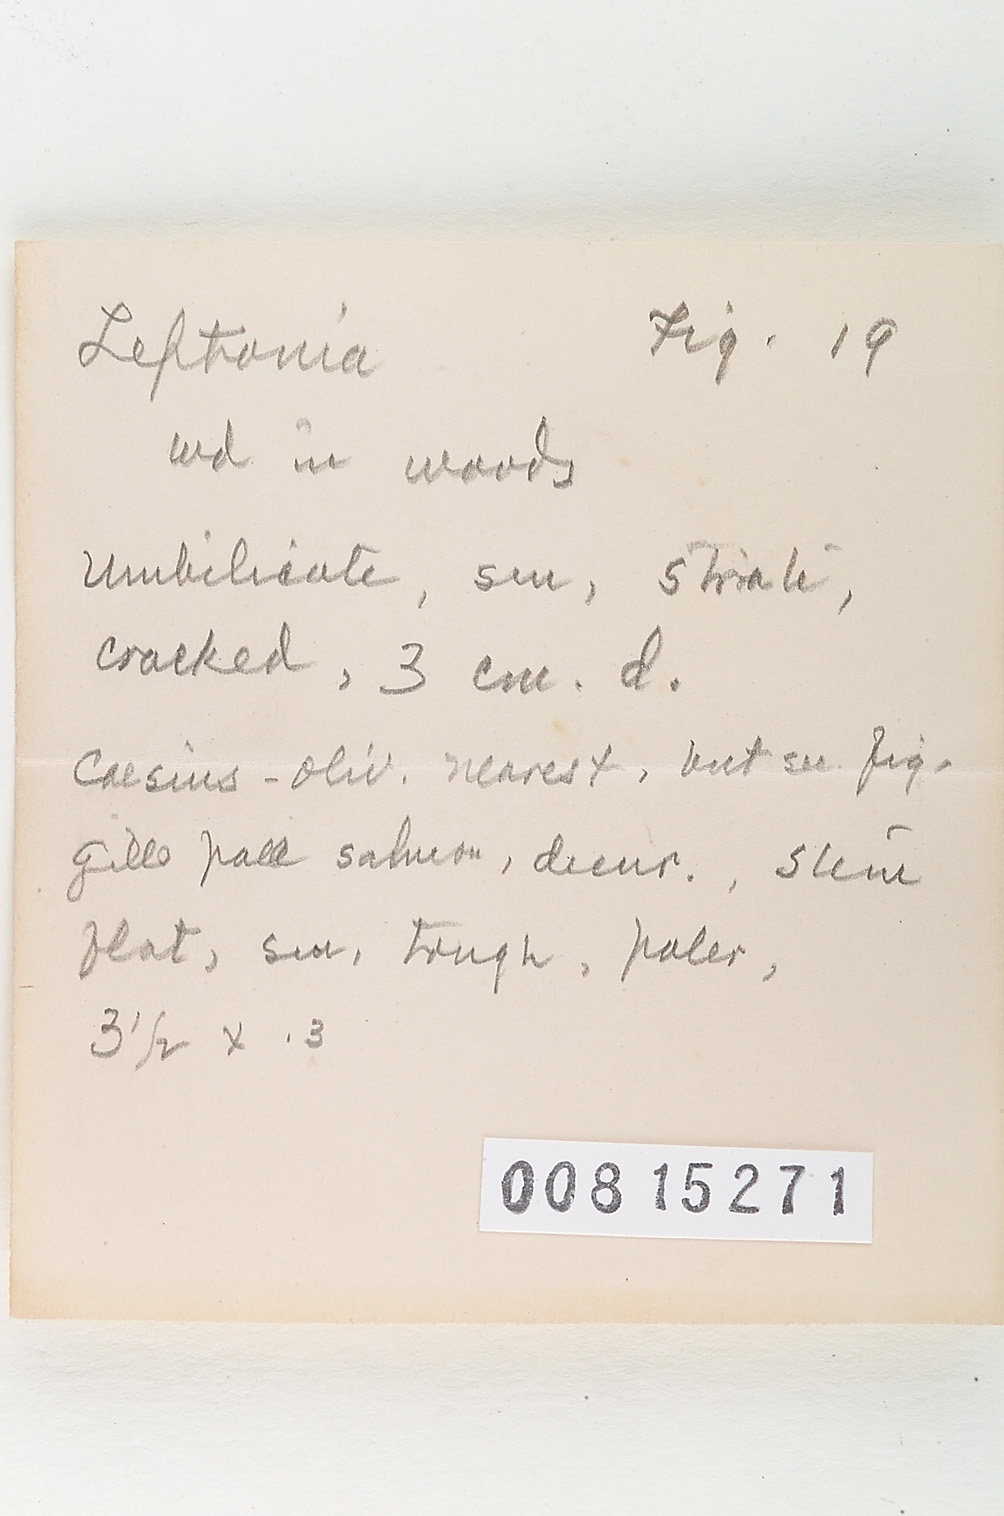 Leptonia Fig. 19
wd in woods
Umbilicate, sm, striate,
cracked, 3 cm. d.
Caesius-oliv. nearest, but see fig.
Gills pale salmon, decur., stem
flat, sm, tough, paler,
3 1/2 x .3
00815271